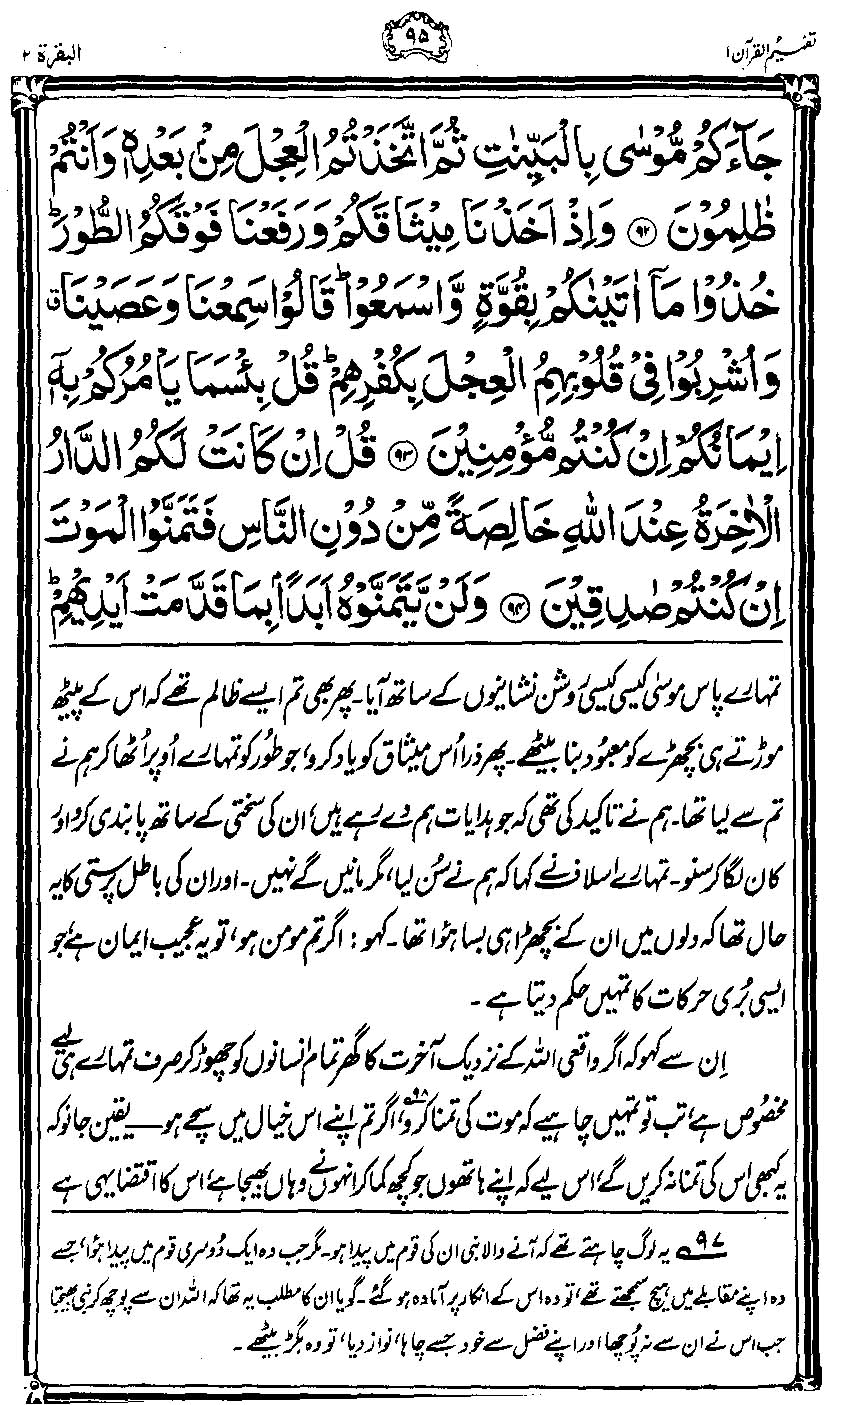 تفہیم القرآن ۱
۹۵
البقرۃ ۲
جَآءَكُمْ مُّوْسٰى بِالْبَيِّنٰتِ ثُمَّ اتَّخَذْتُمُ الْعِجْلَ مِنْۢ بَعْدِهٖ وَاَنْتُمْ
ظٰلِمُوْنَ ﴿۹۲﴾ وَاِذْ اَخَذْنَا مِيْثَاقَكُمْ وَرَفَعْنَا فَوْقَكُمُ الطُّوْرَ ؕ
خُذُوْا مَاۤ اٰتَيْنٰكُمْ بِقُوَّةٍ وَّاسْمَعُوْا ؕ قَالُوْا سَمِعْنَا وَعَصَيْنَا ۗ
وَاُشْرِبُوْا فِيْ قُلُوْبِهِمُ الْعِجْلَ بِكُفْرِهِمْ ؕ قُلْ بِئْسَمَا يَاْمُرُكُمْ بِهٖۤ
اِيْمَانُكُمْ اِنْ كُنْتُمْ مُّؤْمِنِيْنَ ﴿۹۳﴾ قُلْ اِنْ كَانَتْ لَكُمُ الدَّارُ
الْاٰخِرَةُ عِنْدَ اللّٰهِ خَالِصَةً مِّنْ دُوْنِ النَّاسِ فَتَمَنَّوُا الْمَوْتَ
اِنْ كُنْتُمْ صٰدِقِيْنَ ﴿۹۴﴾ وَلَنْ يَّتَمَنَّوْهُ اَبَدًۢا بِمَا قَدَّمَتْ اَيْدِيْهِمْ ؕ
تمہارے پاس موسیٰ کیسی کیسی روشن نشانیوں کے ساتھ آیا۔ پھر بھی تم ایسے ظالم تھے کہ اس کے پیٹھ
موڑتے ہی بچھڑے کو معبود بنا بیٹھے۔ پھر ذرا اُس میثاق کو یاد کرو، جو طُور کو تمہارے اُوپر اُٹھا کر ہم نے
تم سے لیا تھا۔ ہم نے تاکید کی تھی کہ جو ہدایات ہم دے رہے ہیں، ان کی سختی کے ساتھ پابندی کرو اور
کان لگا کر سنو۔ تمہارے اسلاف نے کہا کہ ہم نے سُن لیا، مگر مانیں گے نہیں۔ اور ان کی باطل پرستی کا یہ
حال تھا کہ دلوں میں ان کے بچھڑا ہی بسا ہوا تھا۔ کہو: اگر تم مومن ہو، تو یہ عجیب ایمان ہے، جو
ایسی بُری حرکات کا تمہیں حکم دیتا ہے۔
اِن سے کہو کہ اگر واقعی اللہ کے نزدیک آخرت کا گھر تمام انسانوں کو چھوڑ کر صرف تمہارے ہی لیے
مخصوص ہے، تب تو تمہیں چاہیے کہ موت کی تمنا کرو،۹۸ اگر تم اپنے اس خیال میں سچے ہو — یقین جانو کہ
یہ کبھی اس کی تمنا نہ کریں گے، اس لیے کہ اپنے ہاتھوں جو کچھ کما کر انہوں نے وہاں بھیجا ہے، اس کا اقتضا یہی ہے
۹۷ یہ لوگ چاہتے تھے کہ آنے والا نبی ان کی قوم میں پیدا ہو۔ مگر جب وہ ایک دُوسری قوم میں پیدا ہُوا، جسے
وہ اپنے مقابلے میں ہیچ سمجھتے تھے، تو وہ اس کے انکار پر آمادہ ہو گئے۔ گویا ان کا مطلب یہ تھا کہ اللہ ان سے پوچھ کر نبی بھیجتا
جب اس نے ان سے نہ پُوچھا اور اپنے فضل سے خود جسے چاہا، نواز دیا، تو وہ بگڑ بیٹھے۔